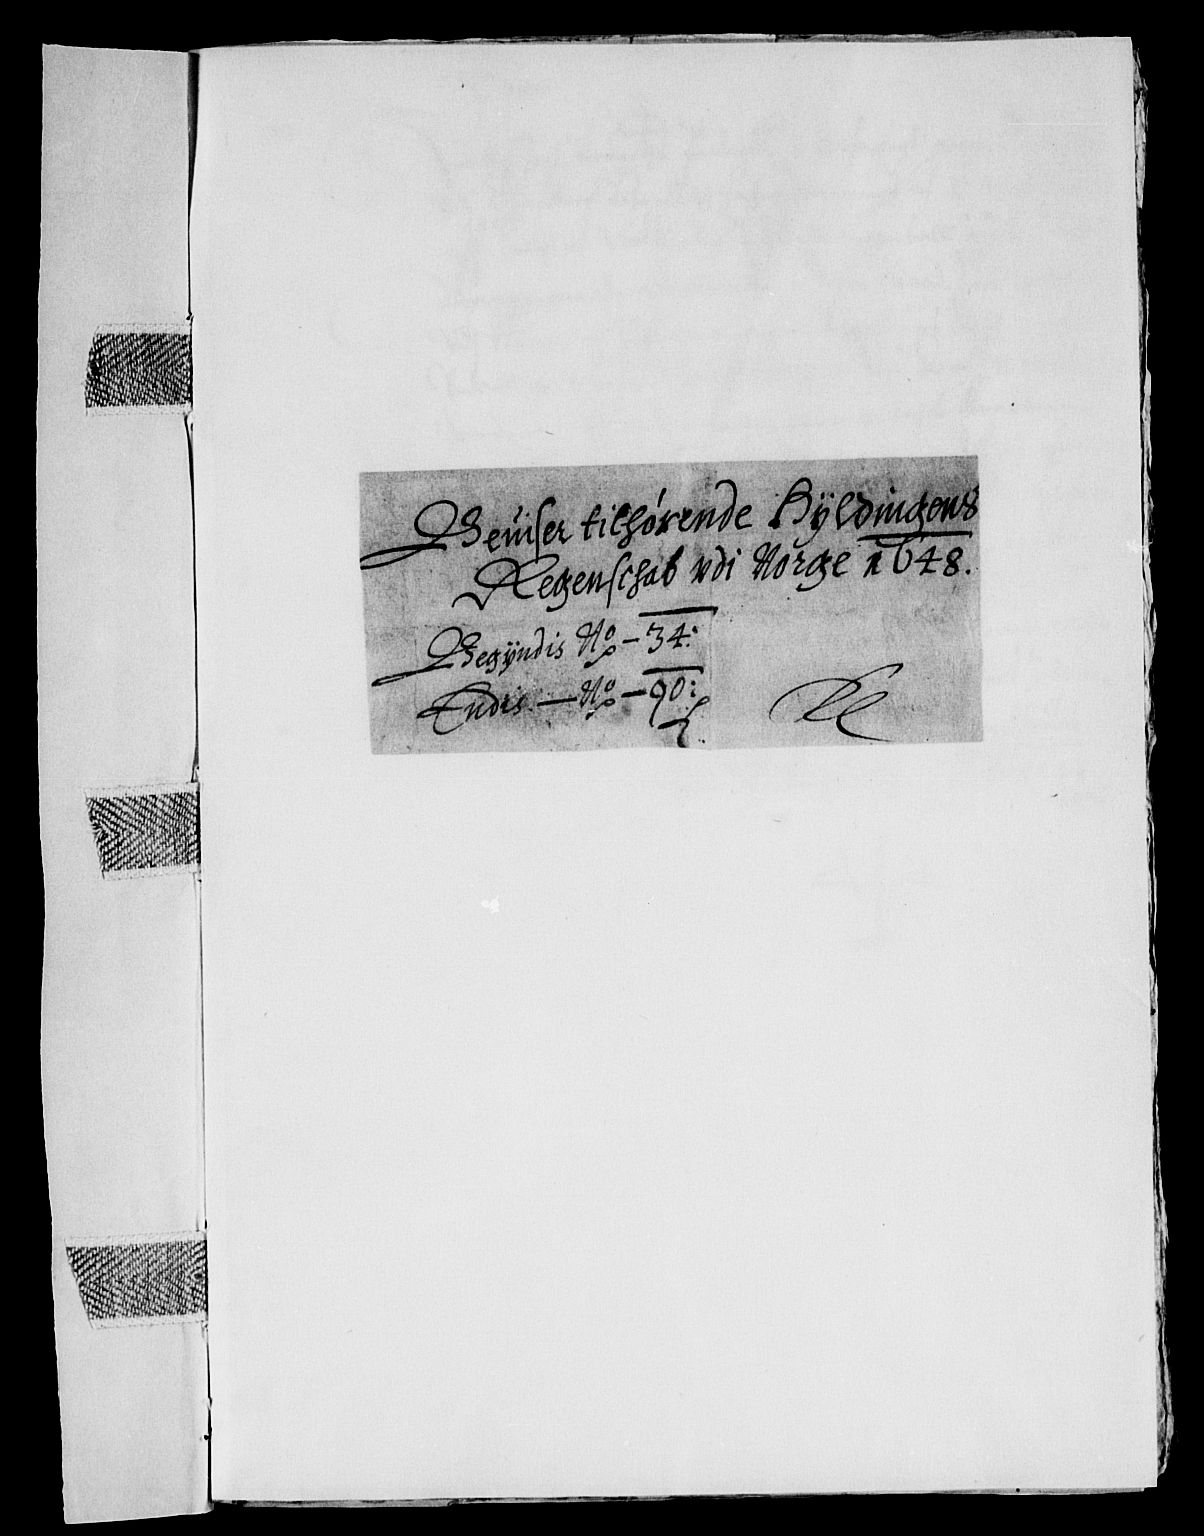 Beuiser tilhørende Hÿldingens
Regenschab vdi Norge 1648.
Begÿndis No – 34:
Endis. — No – 90: